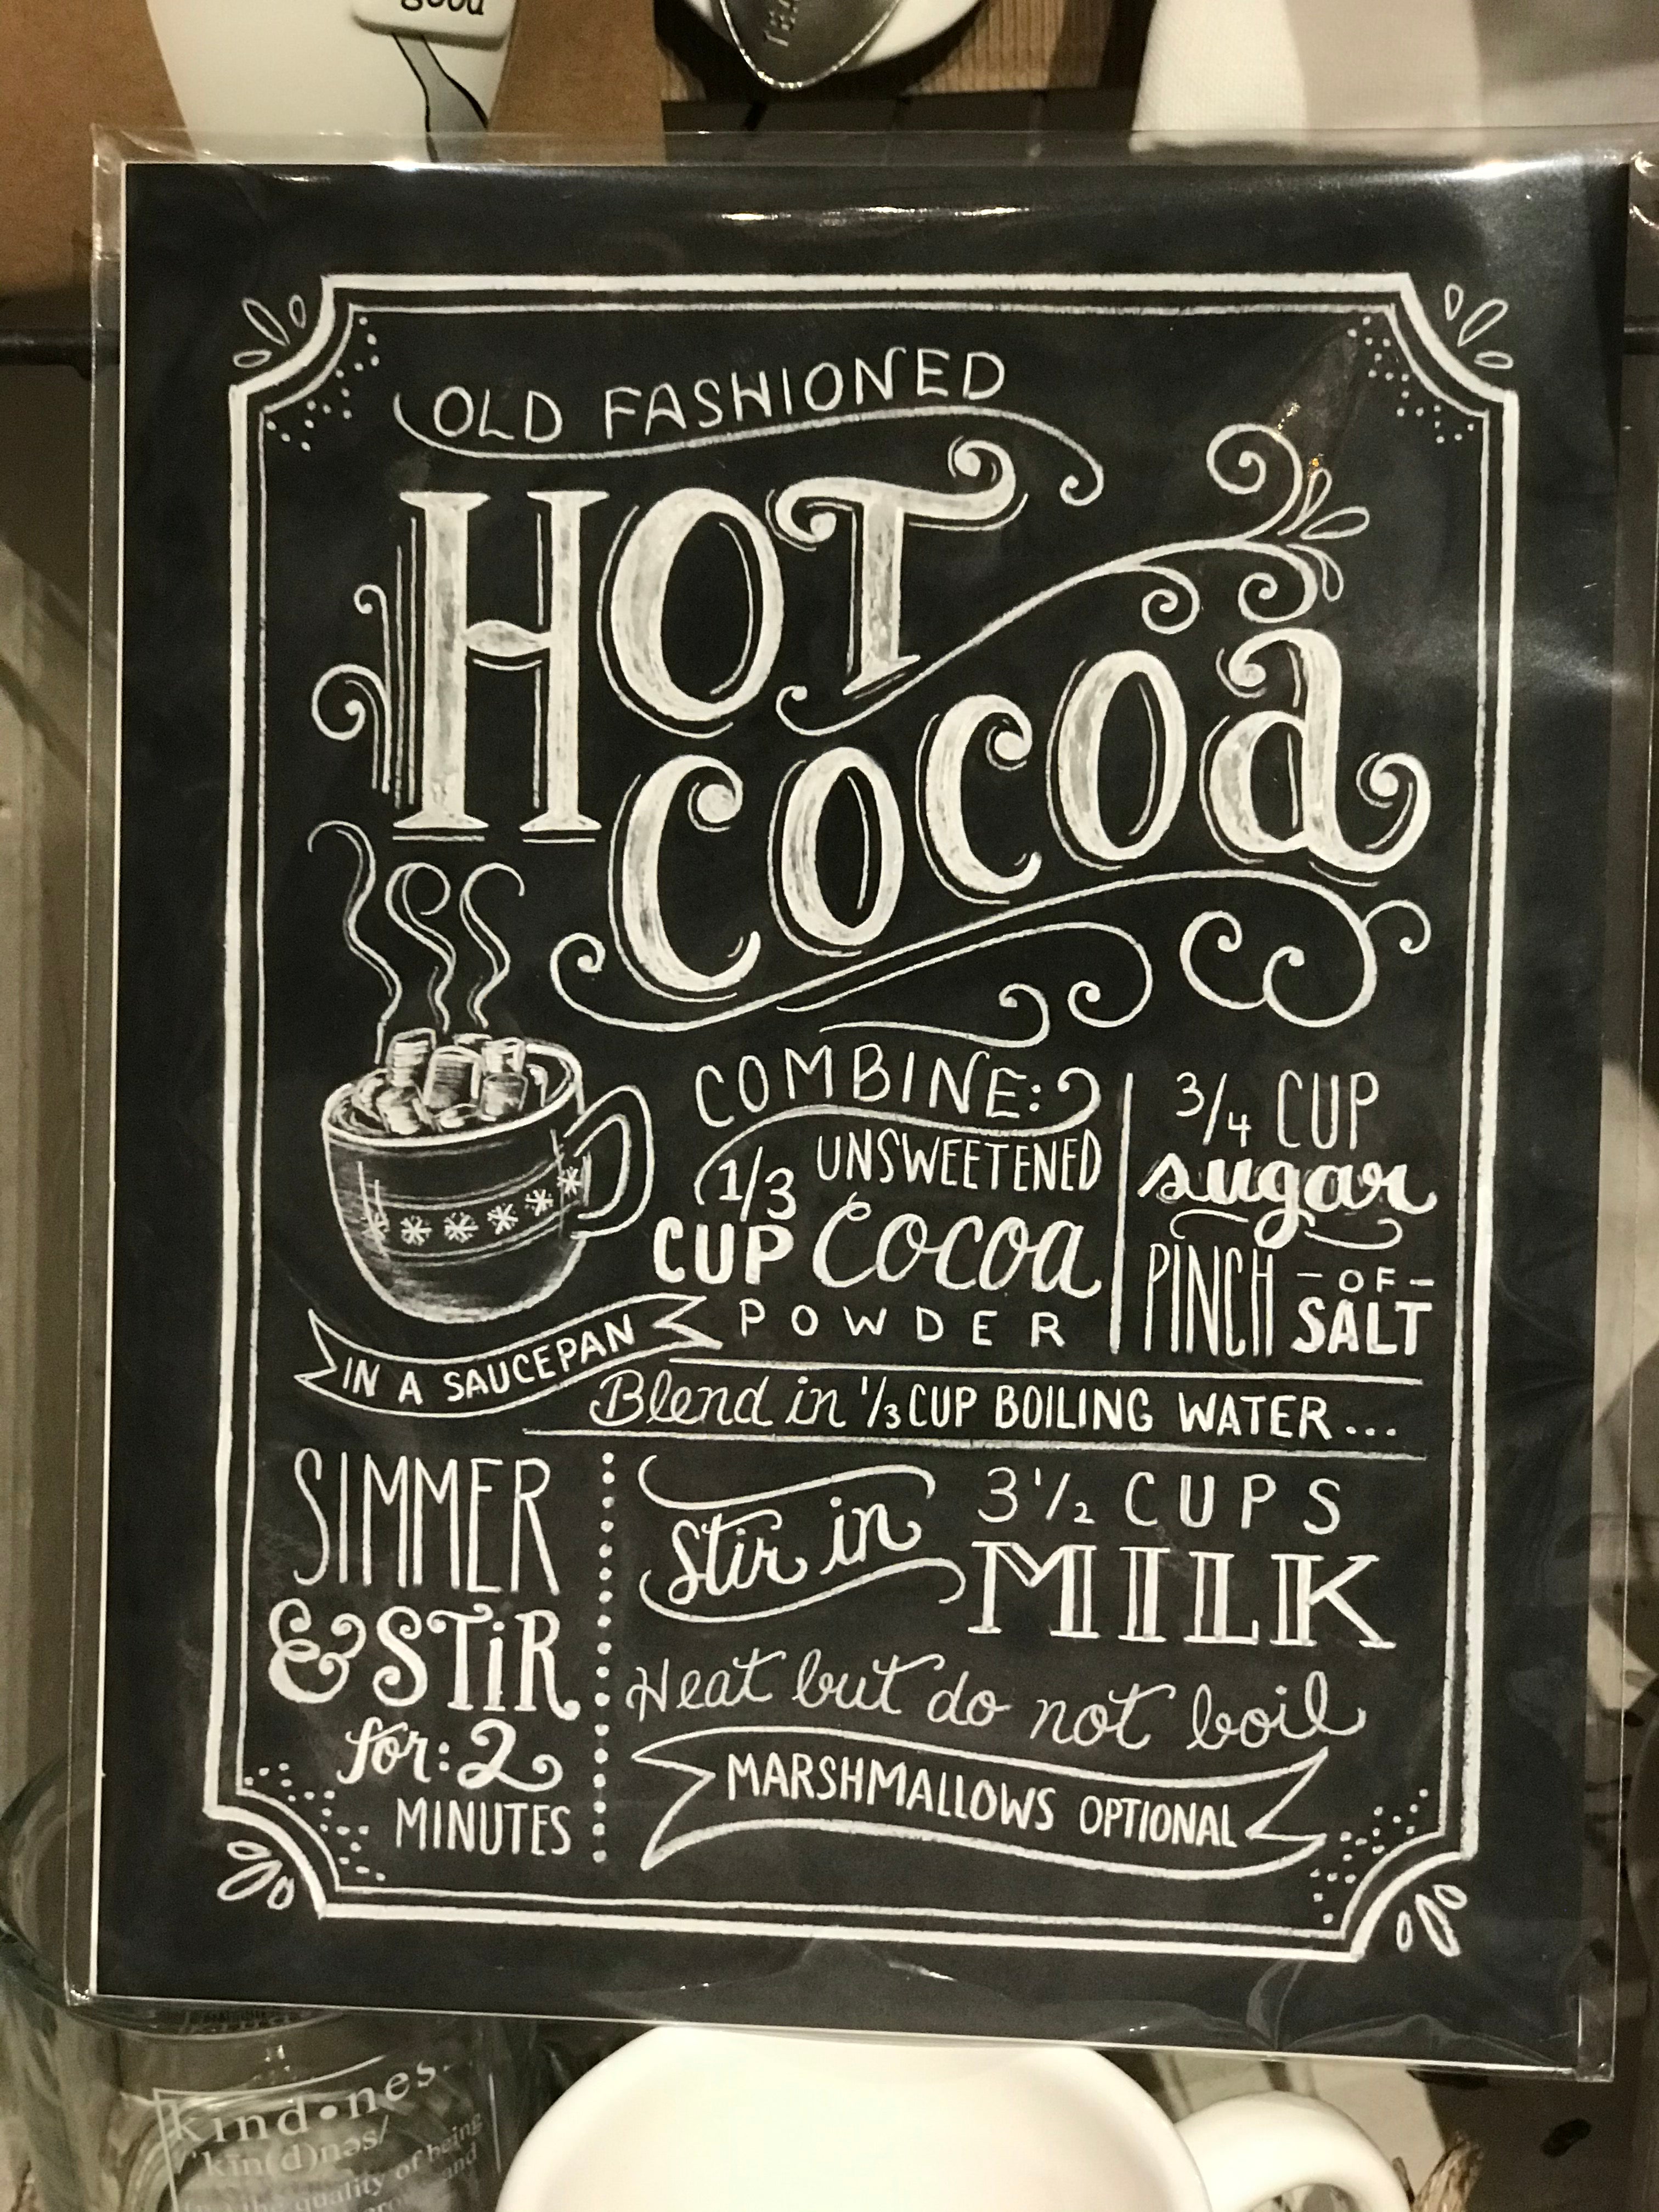 good
OLD FASHIONED
HOT
COCOA
COMBINE:
1/3 CUP UNSWEETENED
Cocoa
POWDER
3/4 CUP
sugar
PINCH -OF-
SALT
IN A SAUCEPAN
Blend in 1/3 CUP BOILING WATER...
SIMMER
& STIR
for: 2
MINUTES
Stir in 3 1/2 CUPS
MILK
Heat but do not boil
MARSHMALLOWS OPTIONAL
kind•nes
/ˈkīn(d)nəs/
the quality of being
and